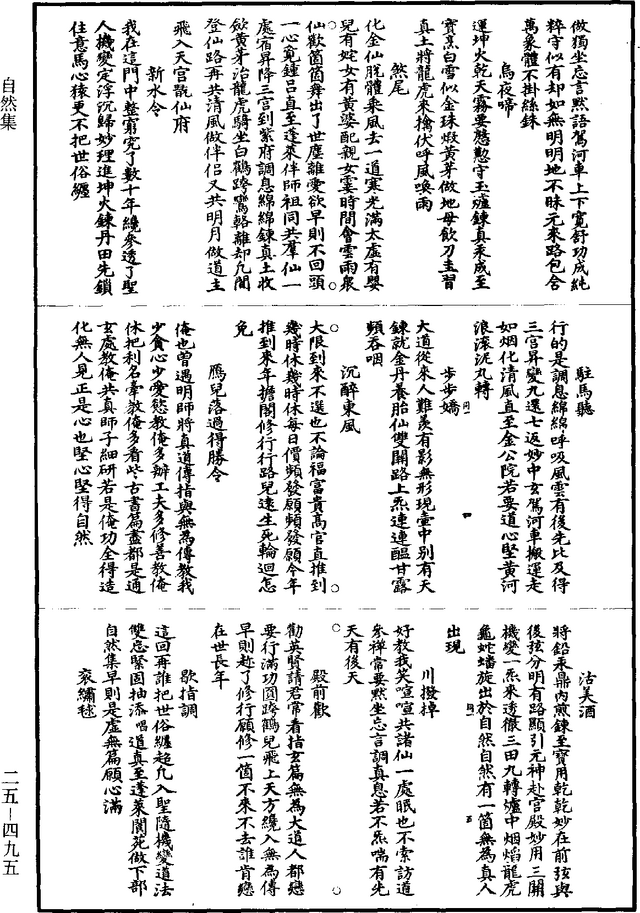 自然集
二五－四九五
做獨坐忘言默語駕河車上下寬舒功成純
粹守似有却如無明明地不昧元來路包含
萬象體不掛絲銖
烏夜啼
運坤火乾天露要慇懃守玉爐鍊真汞成至
寶烹白雪似金珠煅黄芽做地母飲刀圭習
真土將龍虎來擒伏呼風喚雨
煞尾
化金仙脫體乘風去一道寒光滿太虛有嬰
兒有姹女有黄婆配親女霎時間會雲雨衆
仙歡箇箇舞出了世塵離愛欲早則不回頭
一心覓鍾吕直至蓬萊伴師祖同共羣仙一
處宿昇降三宫到紫府調息綿綿鍊真土收
欲黄芽治龍虎騎坐白鶴跨鸞輅離却凡間
登仙路再共清風做伴侣又共明月做道主
飛入天宫翫仙府
新水令
我在這門中整窮究了數十年纔參透了聖
人機變定浮沉歸妙理進坤火鍊丹田先鎖
住意馬心猿更不把世俗纏
駐馬聽
行的是調息綿綿呼吸風雲有後先比及得
三宫昇變九還七返妙中玄駕河車搬運走
如烟化清風直至金公院若要道心堅黄河
浪滾泥丸轉
步步嬌
大道從來人難羨有影無形現壷中别有天
鍊就金丹養胎仙雙關路上炁連連醞甘露
頻吞咽
沉醉東風
大限到來不選也不論福富貴高官直推到
幾時休幾時休每日價頻發願頻發願今年
推到來年擔閣修行行路兒遠生死輪迴怎
免
鴈兒落過得勝令
俺也曾遇明師將真道傳指與無為傳教我
少貪心少愛慾教俺多辦工夫多修善教俺
休把利名牽教俺多看些古書篇盡都是通
玄處教俺共真師子細研若是俺功全得造
化無人見正是心也堅心堅得自然
沽美酒
將鉛汞鼎內煎鍊至寶用乾乾妙在前弦與
後弦分明有路顯引元神赴宫殿妙用三關
機變一炁來透徹三田九轉爐中烟焰龍虎
龜蛇蟠旋出於自然自然有一箇無為真人
出現
川撥棹
好教我笑喧喧共諸仙一處眠也不索訪道
參禪常要默坐忘言調真息若不炁喘有先
天有後天
殿前歡
勸英賢請君常看指玄篇無為大道人都戀
要行滿功圓跨鶴兒飛上天方纔入無為傳
早則趁了修行願修一箇不來不去誰肯戀
在世長年
歇指調
這回再誰把世俗纏超凡入聖隨機變道法
雙忘緊固抽添唱道真至蓬萊閬苑做下部
自然集早則是虛無篇願心滿
袞繡毬